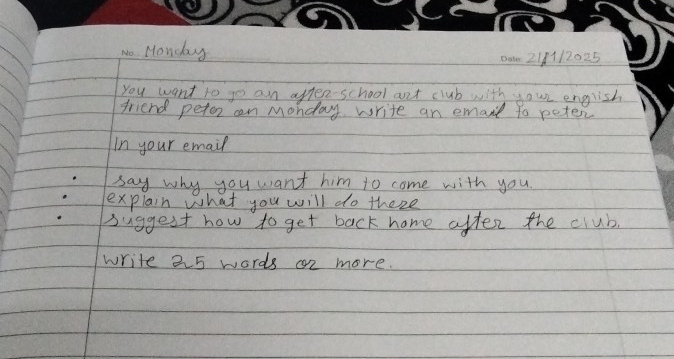 No. Monday
Date 21/1/2025
You want to go an after-school art club with your english
friend peter on Monday. write an email to peter
In your email
• say why you want him to come with you.
• explain what you will do there
• suggest how to get back home after the club.
write 25 words or more.